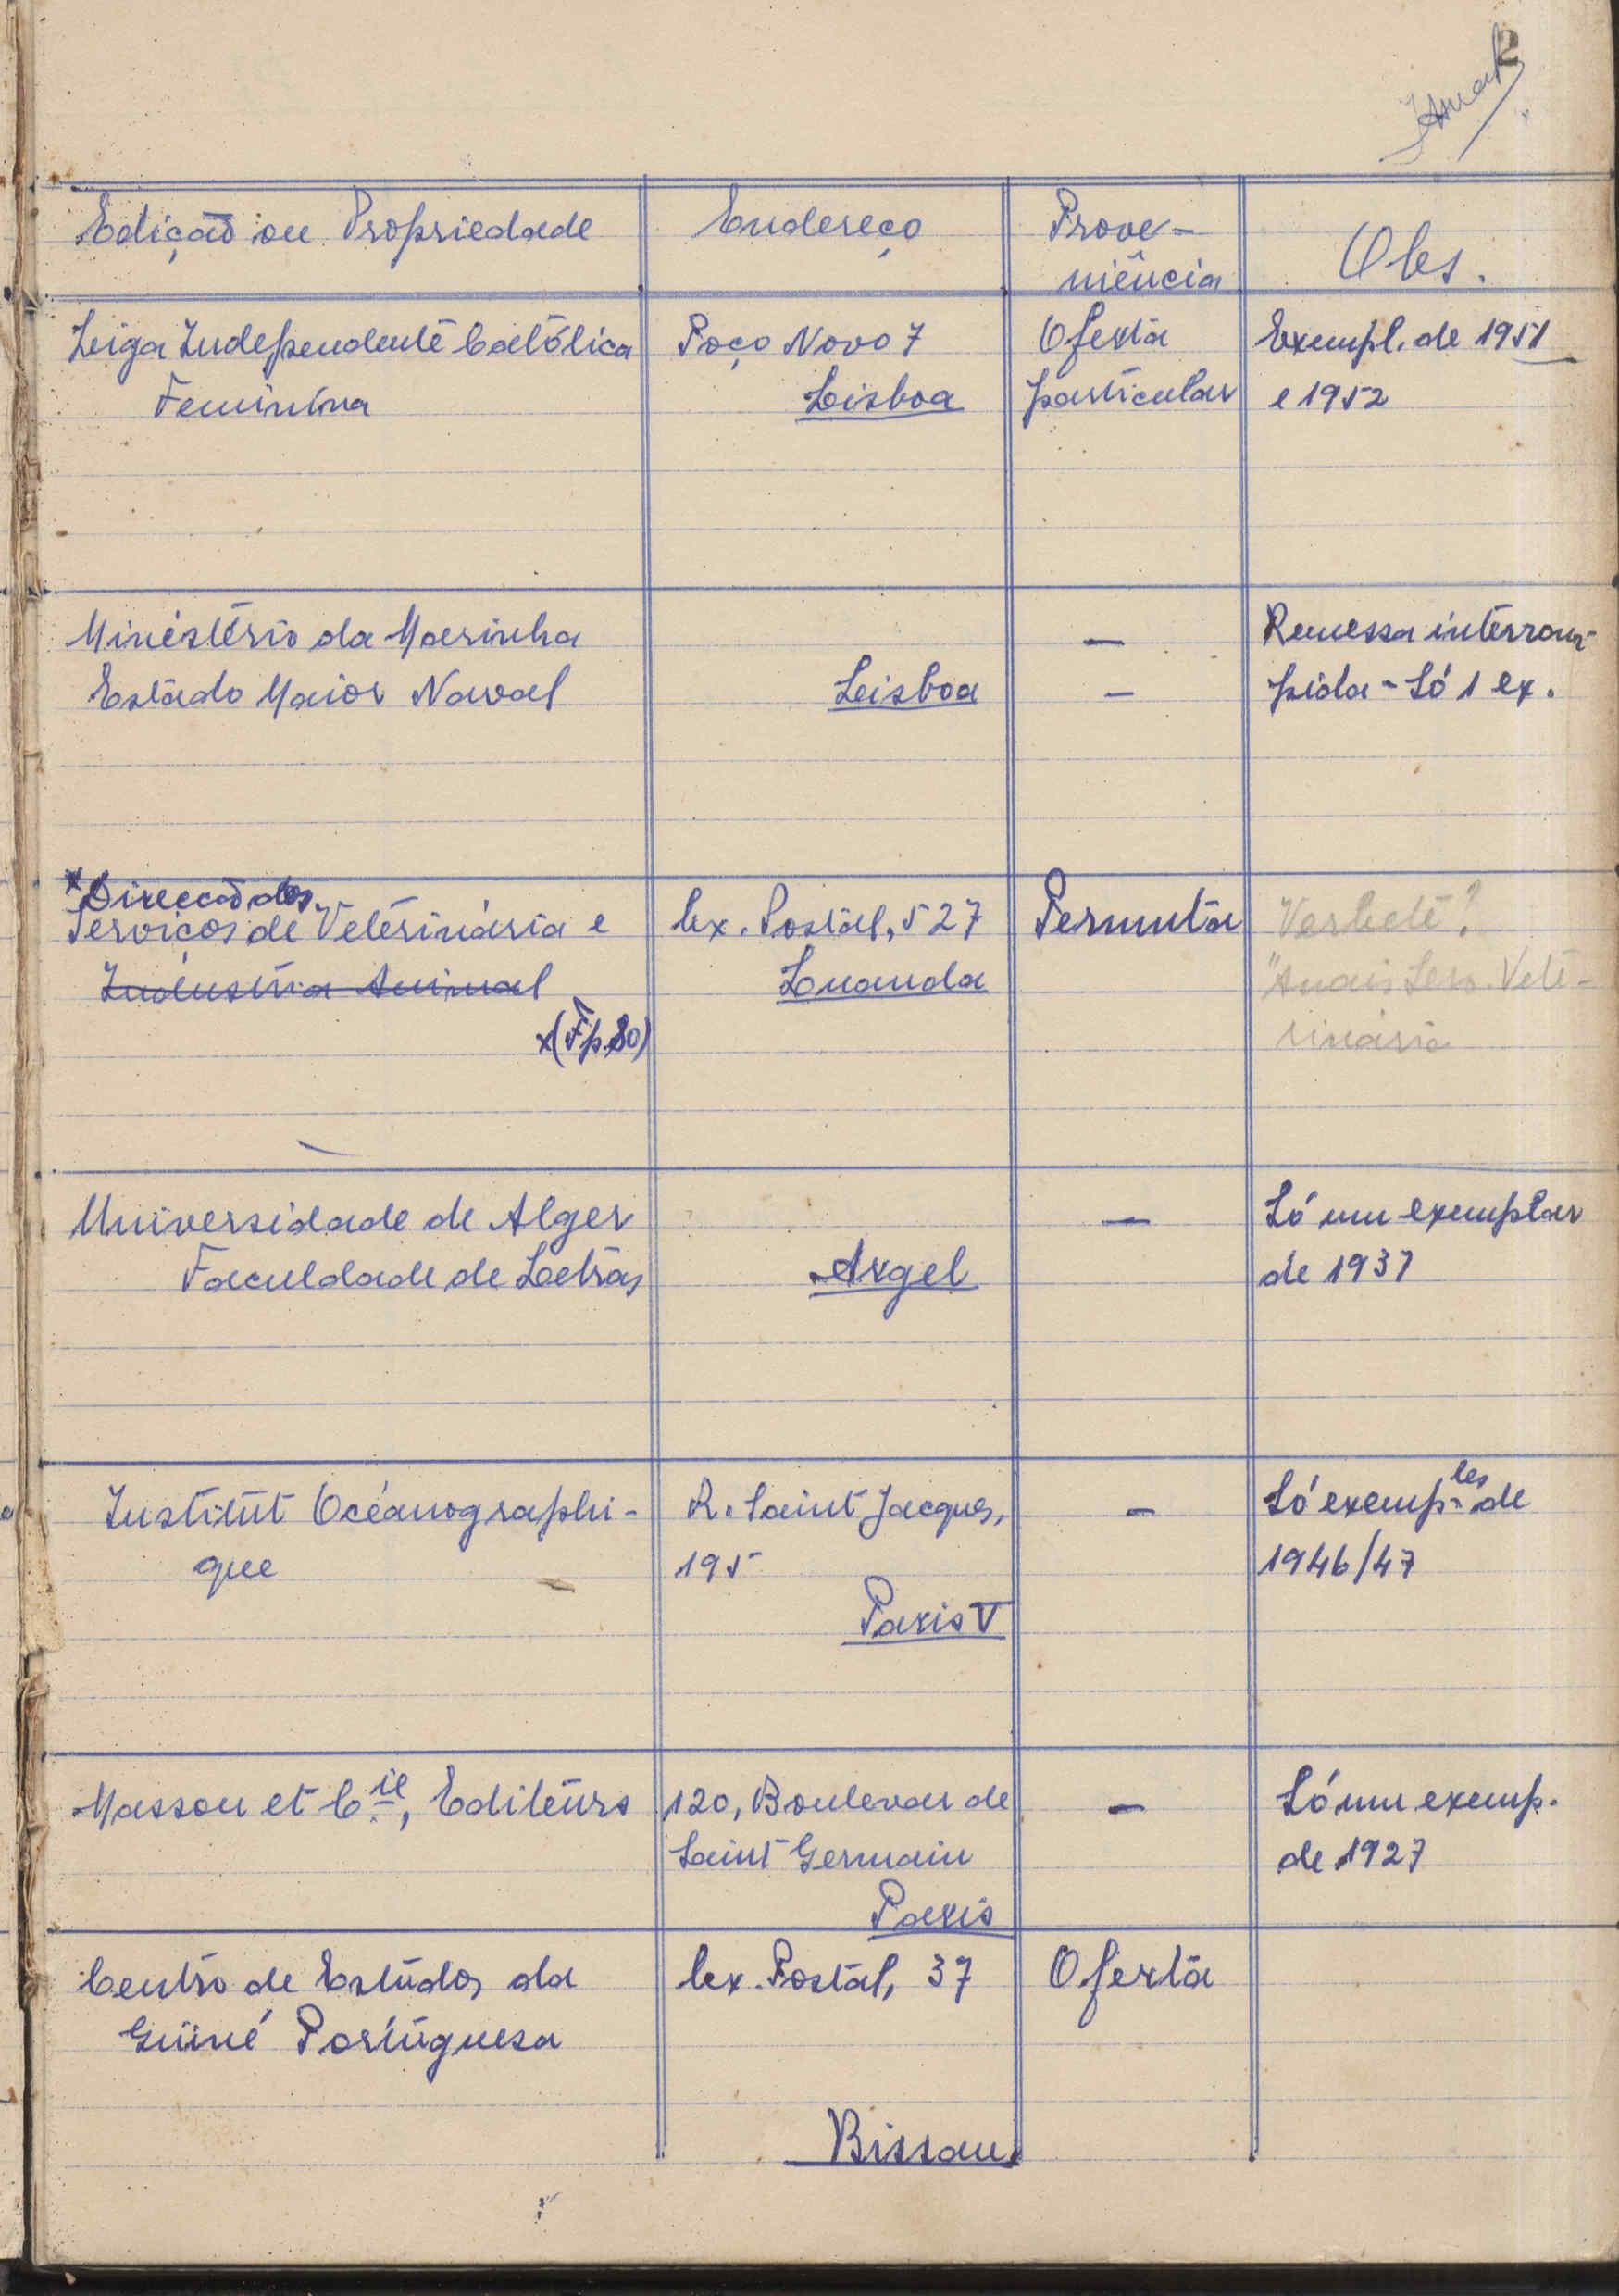 2
Edição ou Propriedade
Endereço
Prove-
niência
Obs.
Liga Independente Católica
Feminina
Poço Novo 7
Lisboa
Oferta
particular
Exempl. de 1951
e 1952
Ministério da Marinha
Estado Maior Naval
Lisboa
—
—
Remessa interrom-
pida - Só 1 ex.
x Direcção dos
Serviços de Veterinária e
Industria Animal
x (Fp. 80)
Cx. Postal, 527
Luanda
Permuta
Verbete?
"Anais Serv. Vete-
rinária
Universidade de Alger
Faculdade de Letras
Argel
—
Só um exemplar
de 1937
Institut Océanographi-
que
R. Saint Jacques,
195
Paris V
—
Só exemp.les de
1946/47
Masson et Cie, Editeurs
120, Boulevar de
Saint Germain
Paris
—
Só um exemp.
de 1927
Centro de Estudos da
Guiné Portuguesa
Cx. Postal, 37
Bissau
Oferta